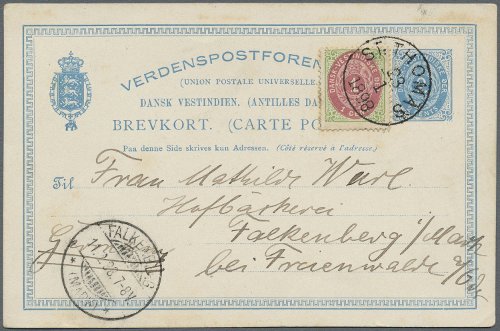 VERDENSPOSTFOREN
(UNION POSTALE UNIVERSELLE
DANSK VESTINDIEN. (ANTILLES DA
BREVKORT. (CARTE PO
Paa denne Side skrives kun Adressen. (Côté réservé à l'adresse.)
ST. THOMAS
1898
1 CENT
Til Frau Mathilde Wurl.
Hofbäckerei
Falkenberg i/Mark
bei Freienwalde a/Od.
FALKENBERG
(MARK)
7-8V.